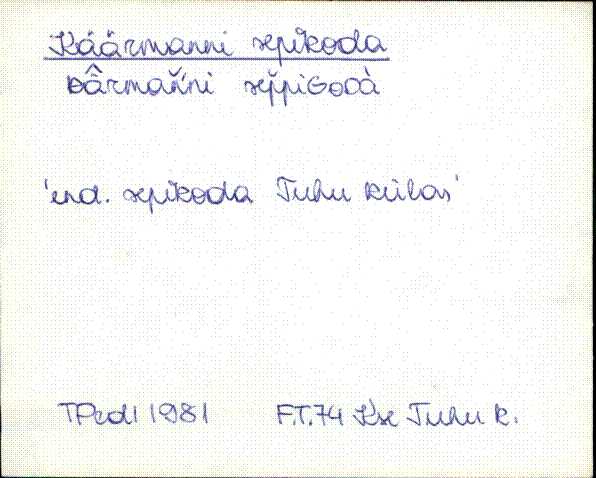 Käärmanni sepikoda
kârmańni sep̆piGoDà
'end. sepikoda Tuhu külas'
1981 F.T.74 Kse Tuhu k.